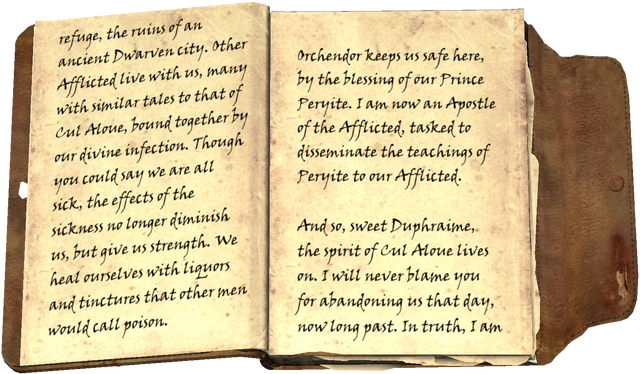 refuge, the ruins of an
ancient Dwarven city. Other
Afflicted live with us, many
with similar tales to that of
Cul Aloue, bound together by
our divine infection. Though
you could say we are all
sick, the effects of the
sickness no longer diminish
us, but give us strength. We
heal ourselves with liquors
and tinctures that other men
would call poison.
Orchendor keeps us safe here,
by the blessing of our Prince
Peryite. I am now an Apostle
of the Afflicted, tasked to
disseminate the teachings of
Peryite to our Afflicted.
And so, sweet Duphraime,
the spirit of Cul Aloue lives
on. I will never blame you
for abandoning us that day,
now long past. In truth, I am